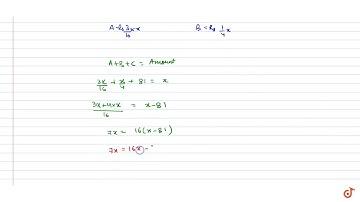 A = Rs 3/16 x x B = Rs 1/4 x
A+B+C = Amount
3x/16 + x/4 + 81 = x
3x+4x/16 = x-81
7x = 16(x-81)
7x = 16x -